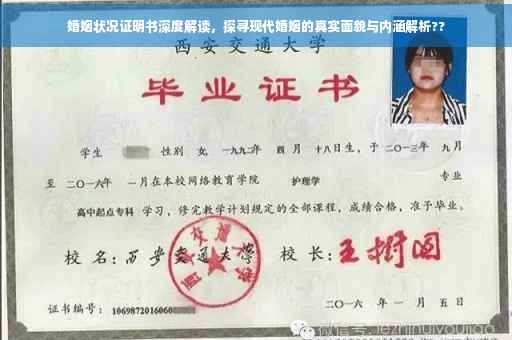 婚姻状况证明书深度解读，探寻现代婚姻的真实面貌与内涵解析??
西安交通大学
毕业证书
学生 性别 女，一九九二年 四月 十八日生，于二〇一三年 九月
至 二〇一六年 一月在本校网络教育学院 护理学 专业
高中起点专科 学习，修完教学计划规定的全部课程，成绩合格，准予毕业。
校 名：西安交通大学 校 长：王树国
西安交通大学
证书编号：1069872016060
二〇一六 年 一 月 五 日
微信号: jiezhihuiyoujiao